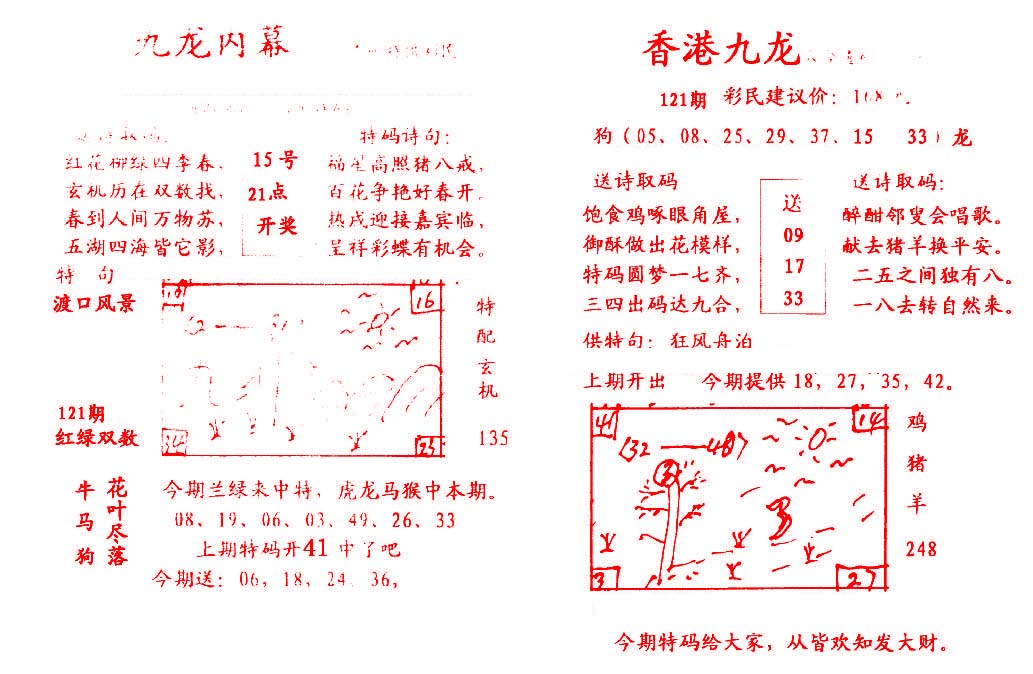 九龙内幕
特码诗句:
红花柳绿四季春,
玄机历在双数找,
春到人间万物苏,
五湖四海皆它影,
15号
21点
开奖
福星高照猪八戒,
百花争艳好春开。
热戌迎接嘉宾临,
呈祥彩蝶有机会。
特 句
渡口风景
16
34
23
特配玄机
135
121期
红绿双数
牛马狗
花叶尽落
今期兰绿来中特, 虎龙马猴中本期。
08、19、06、03、49、26、33
上期特码开41 中了吧
今期送: 06, 18, 24、36,
香港九龙
121期 彩民建议价: 168
狗(05、08、25、29、37、15 33)龙
送诗取码
饱食鸡啄眼角屋,
御酥做出花模样,
特码圆梦一七齐,
三四出码达九合,
送
09
17
33
送诗取码:
醉酣邻叟会唱歌。
献去猪羊换平安。
二五之间独有八。
一八去转自然来。
供特句: 狂风舟泊
上期开出 今期提供18, 27, 35, 42。
41
14
3
27
鸡
猪
羊
248
今期特码给大家, 从皆欢知发大财。